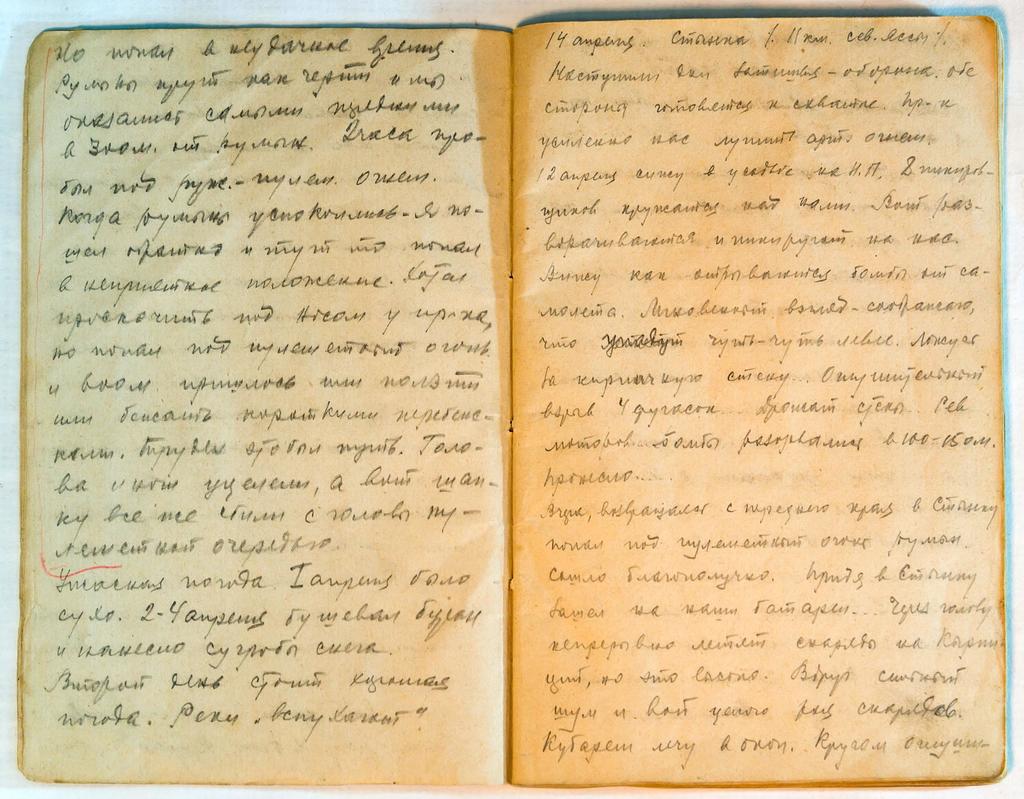 Но попал в неудачное время.
Румыны прут как черти и мы
оказались самыми
в 300м. от румын. 2 часа про-
был под руж.-пулем. огнем.
Когда румыны успокоились - я по-
шел обратно и тут то попал
в неприятное положение. Хотел
проскочить под носом у пр-ка,
но попал под пулеметный огонь
и пришлось или ползти
или бежать короткими перебеж-
ками. Труден это был путь. Голо-
ва и ноги уцелели, а вот шап-
ку все же сбили с головы пу-
леметной очередью.
Ужасная погода. 1 апреля было
сухо. 2-4 апреля бушевал буран
и нанесло сугробы снега.
Второй день стоит хорошая
погода. Реки "вспухают"
14 апреля. Стынка /. 11 км. сев. Яссы /.
Наступили дни затишья - оборона. обе
стороны готовятся к схватке. Пр-к
усиленно нас лупит арт. огнем.
12 апреля сижу в усадьбе на Н.П. 8 пикиров-
щиков кружатся над нами. Вот раз-
ворачиваются и пикируют на нас.
Вижу как отрываются бомбы от са-
молета. Мгновенный взгляд - соображаю,
что упадут чуть-чуть левее. Ложусь
за кирпичную стену... Оглушительный
взрыв 4 фугасок... Дрожат стены. Рев
моторов - бомбы разорвались в 100-150м.
Пронесло.....
Вчера, возвращаясь с переднего края в Стынку
попал под пулеметный огонь румын.
Сошло благополучно. Придя в Стынку
зашел на наши батареи... Через голову
непрерывно летят снаряды на Кырпи-
цит, но это высоко. Вдруг сильный
шум и вой целого ряд снарядов.
Кубарем лечу в окоп. Кругом оглуши-